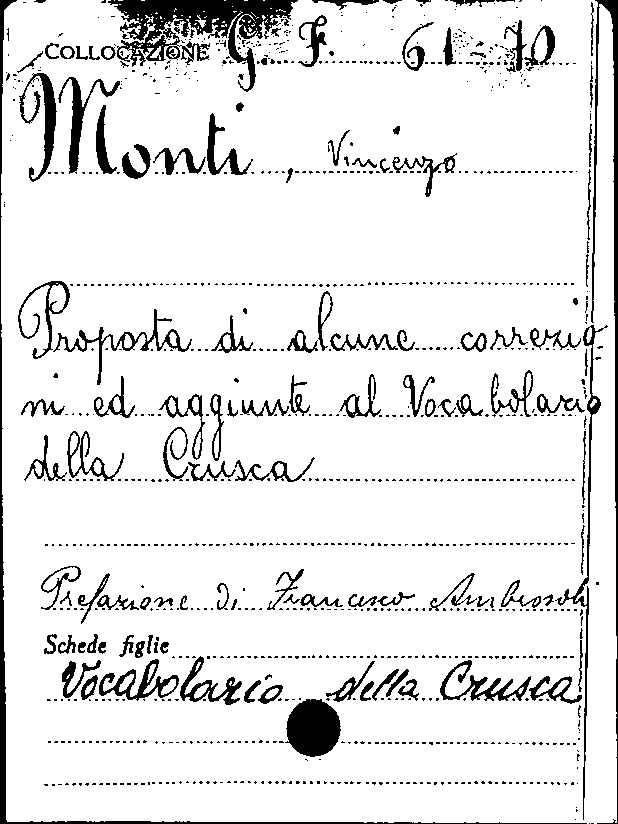 COLLOCAZIONE G. F. 61-70
Monti, Vincenzo
Proposta di alcune correzio-
ni ed aggiunte al Vocabolario
della Crusca
Prefazione di Francesco Ambrosoli
Schede figlie
Vocabolario della Crusca